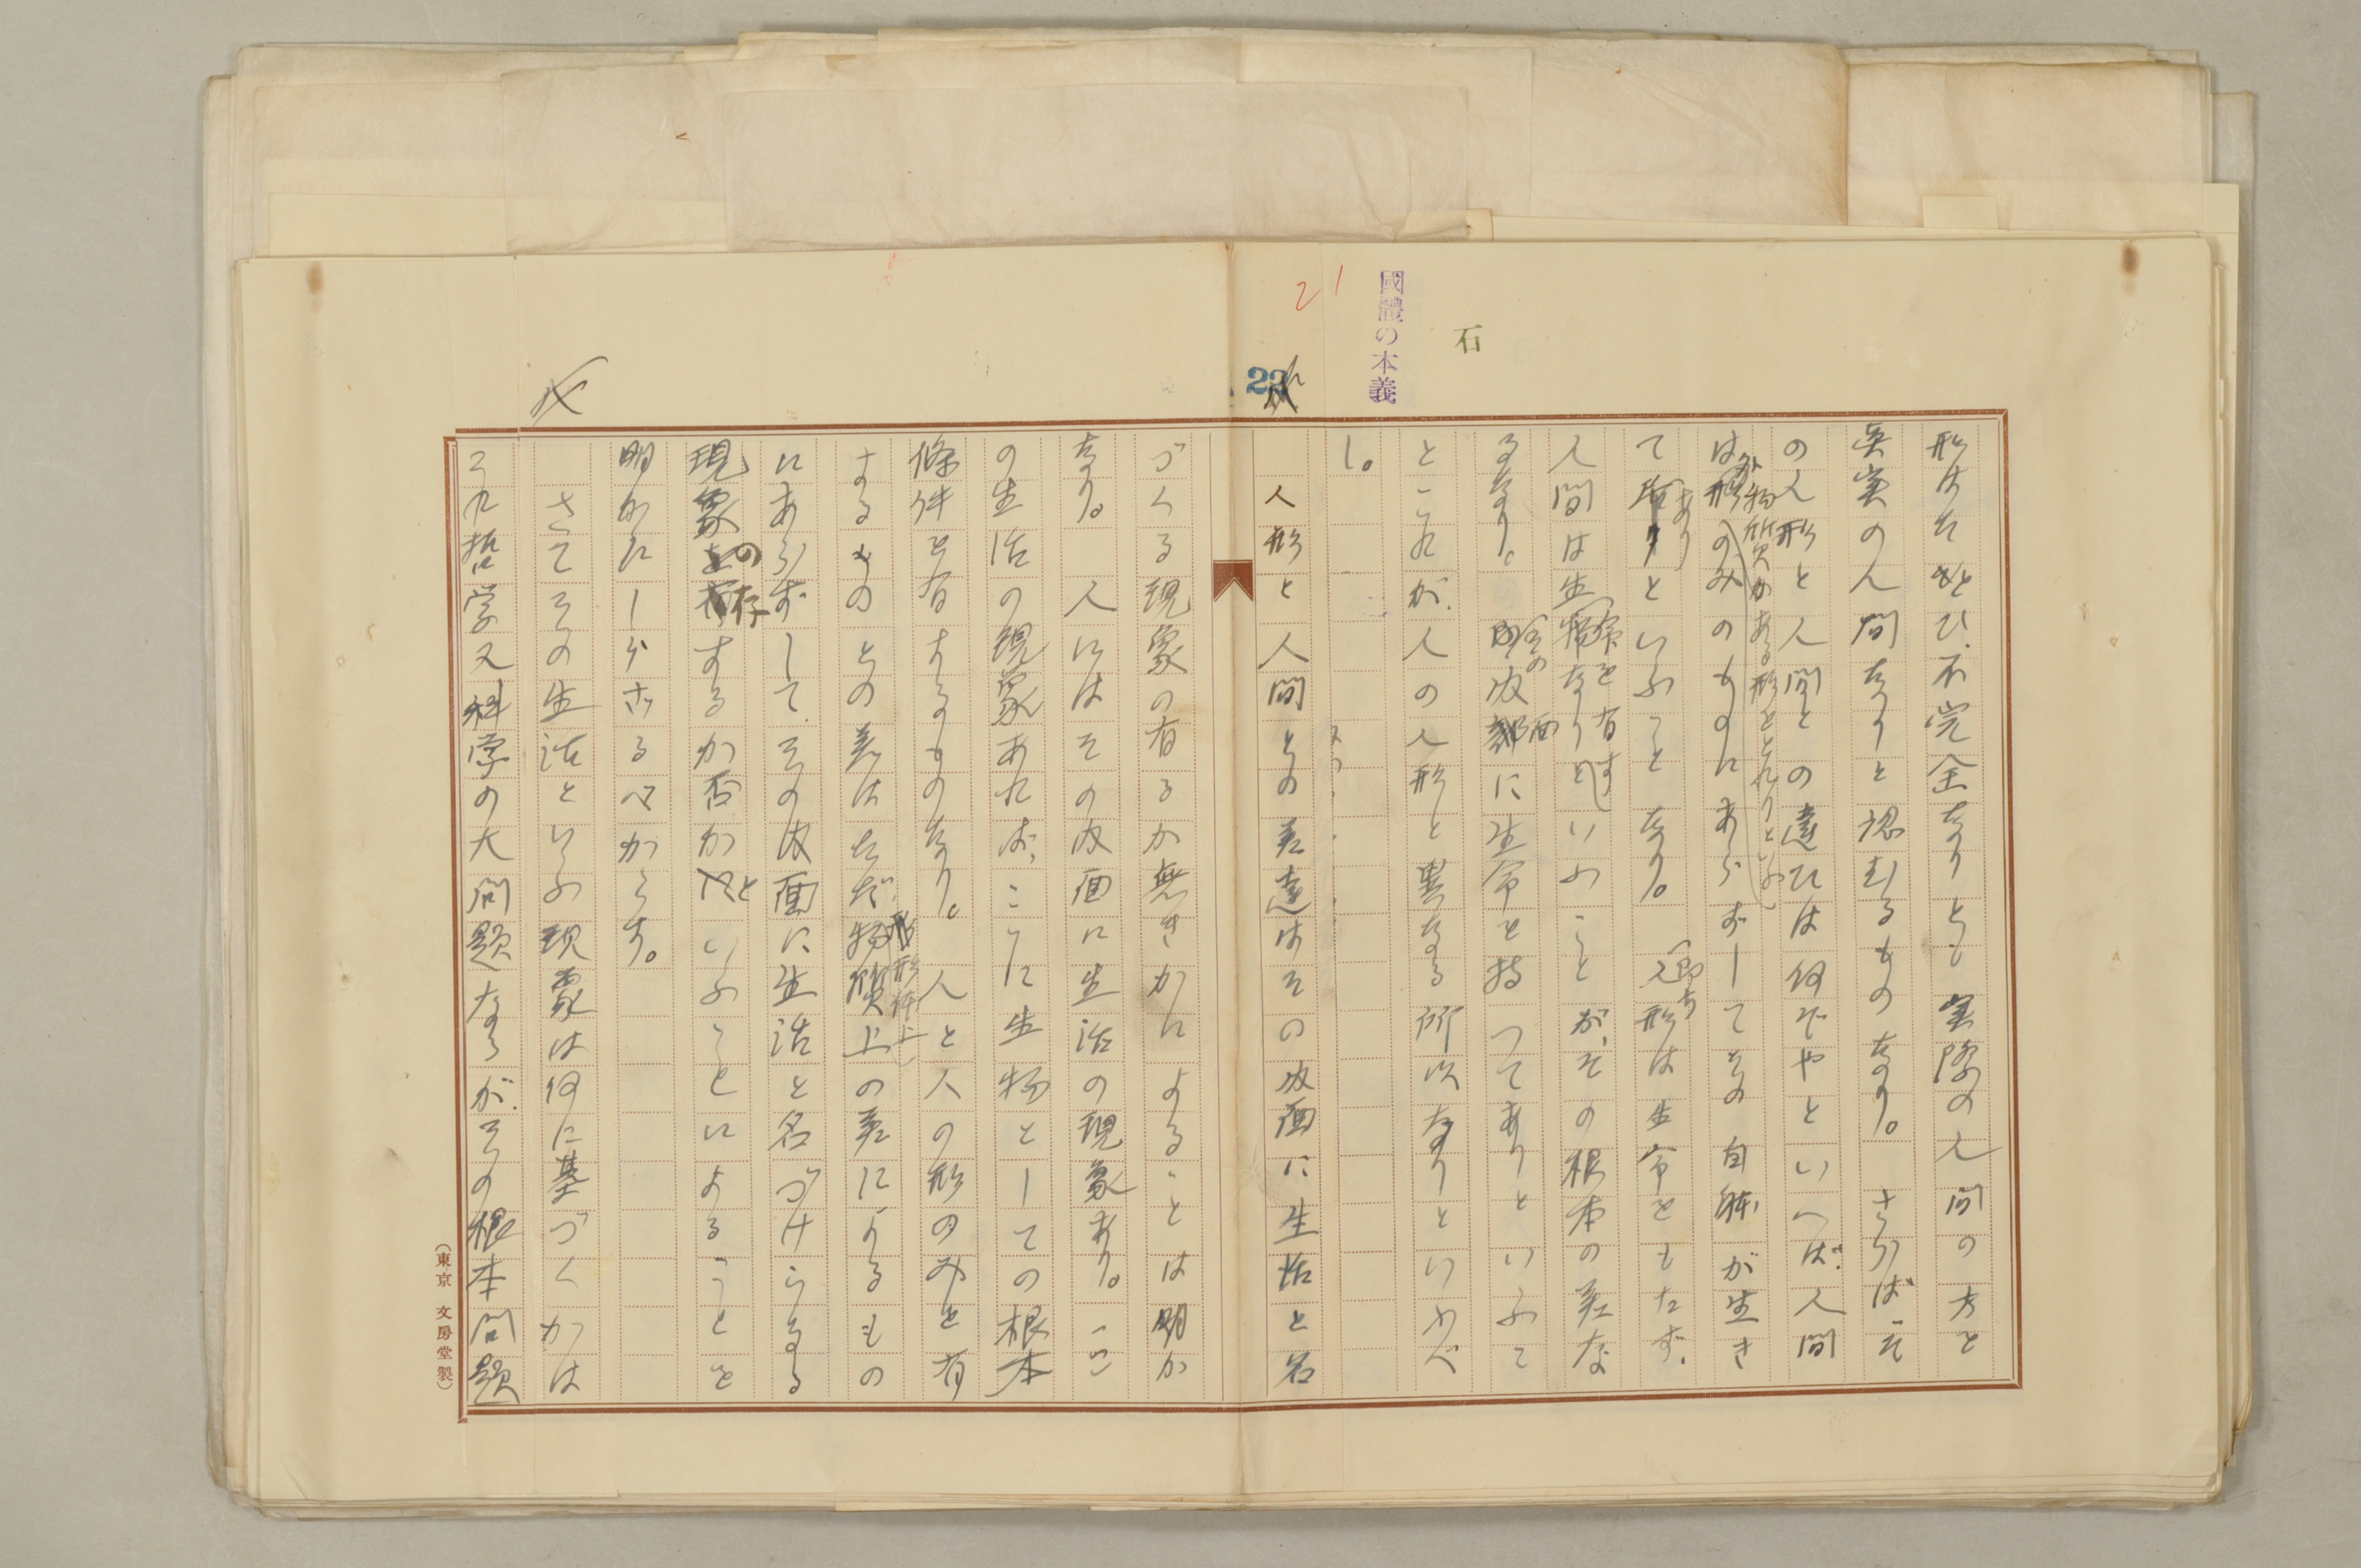 國體の本義
石
21
22
形はたとひ、不完全なりとも実際の人間の方と
真実の人間なりと認むるものなり。さらばそ
の人形と人間との違ひは何ぞやといへば、人間
は形のみのものにあらずしてその自躰が生き
が物質がある形をとれりといふ
てありといふことなり。即ち人形は生命をもたず、
人間は生命を有すといふことが、その根本の差な
るなり。その内面に生命を持つてありといふて
ところが、人の人形と異なる所以なりといふべ
し。
人形と人間との差違はその内面に生活と名
づくる現象の有るか無きかによることは明か
なり。人にはその内面に生活の現象あり。ここ
の生活の現象あれば、ここに生物としての根本
條件を有するものなり。人と人の形のみを有
するものとの差はただ物質上の差によるもの
形体上
にあらずして、その内面に生活と名づけらるる
現象の存するか否かといふことによることを
明かにしらざるべからず。
さてその生活といふ現象は何に基づくかは
これ哲学又科学の大問題なるが、その根本問題
（東京 文房堂製）